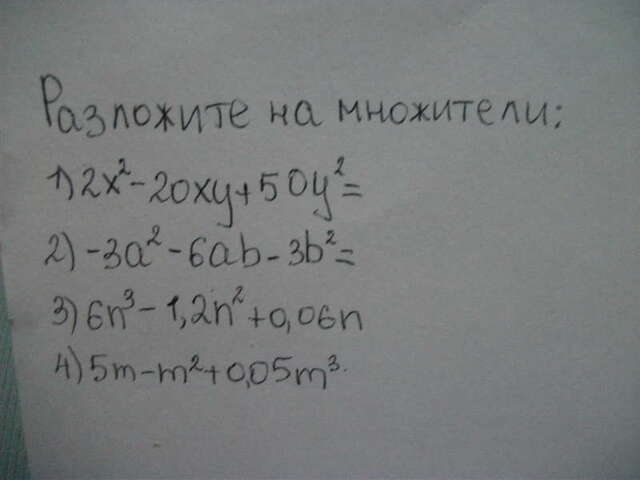 Разложите на множители:
1) 2x²-20xy+50y²=
2) -3a²-6ab-3b²=
3) 6n³-1,2n²+0,06n
4) 5m-m²+0,05m³.